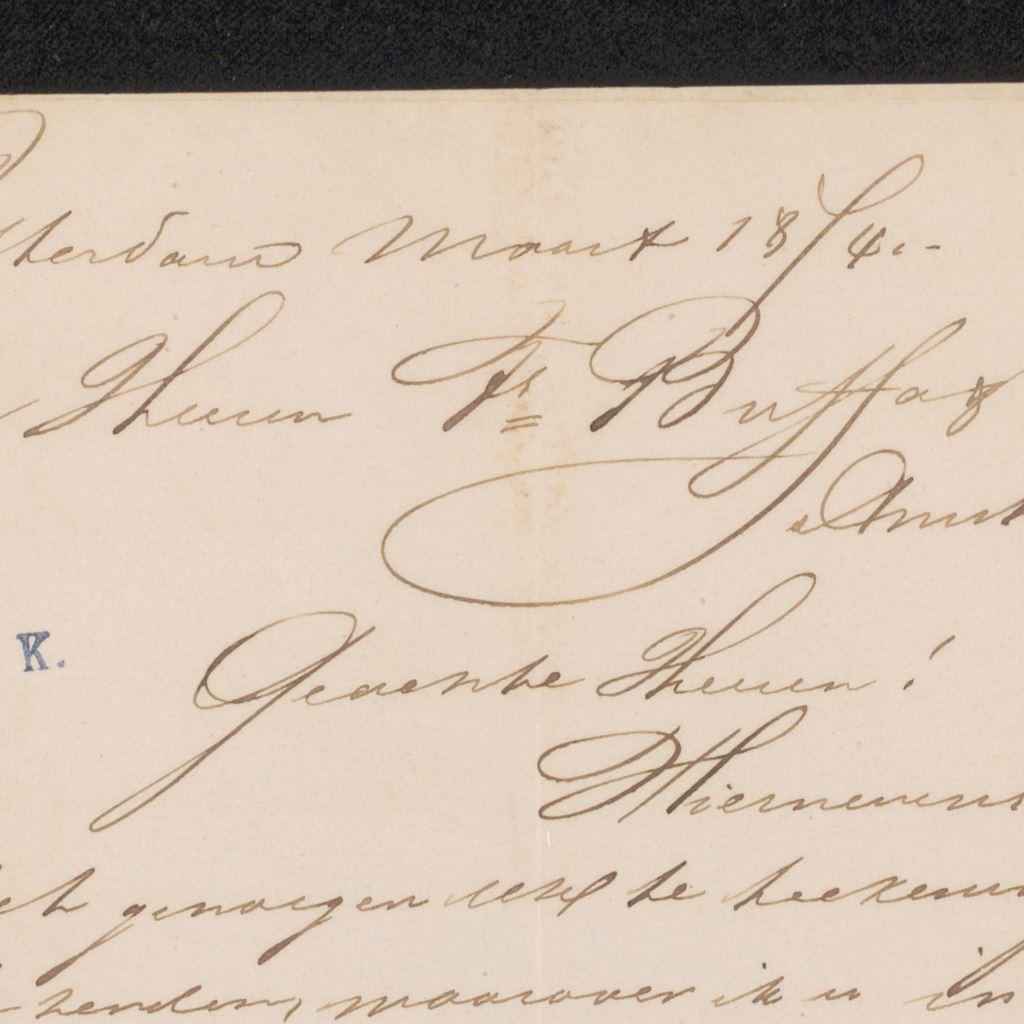 tterdam Maart 1874.-
Heeren Fs Buffa &
Amst
K.
Geachte Heeren!
Hiernevens
genoegen UEd te
zenden, waarover ik u in